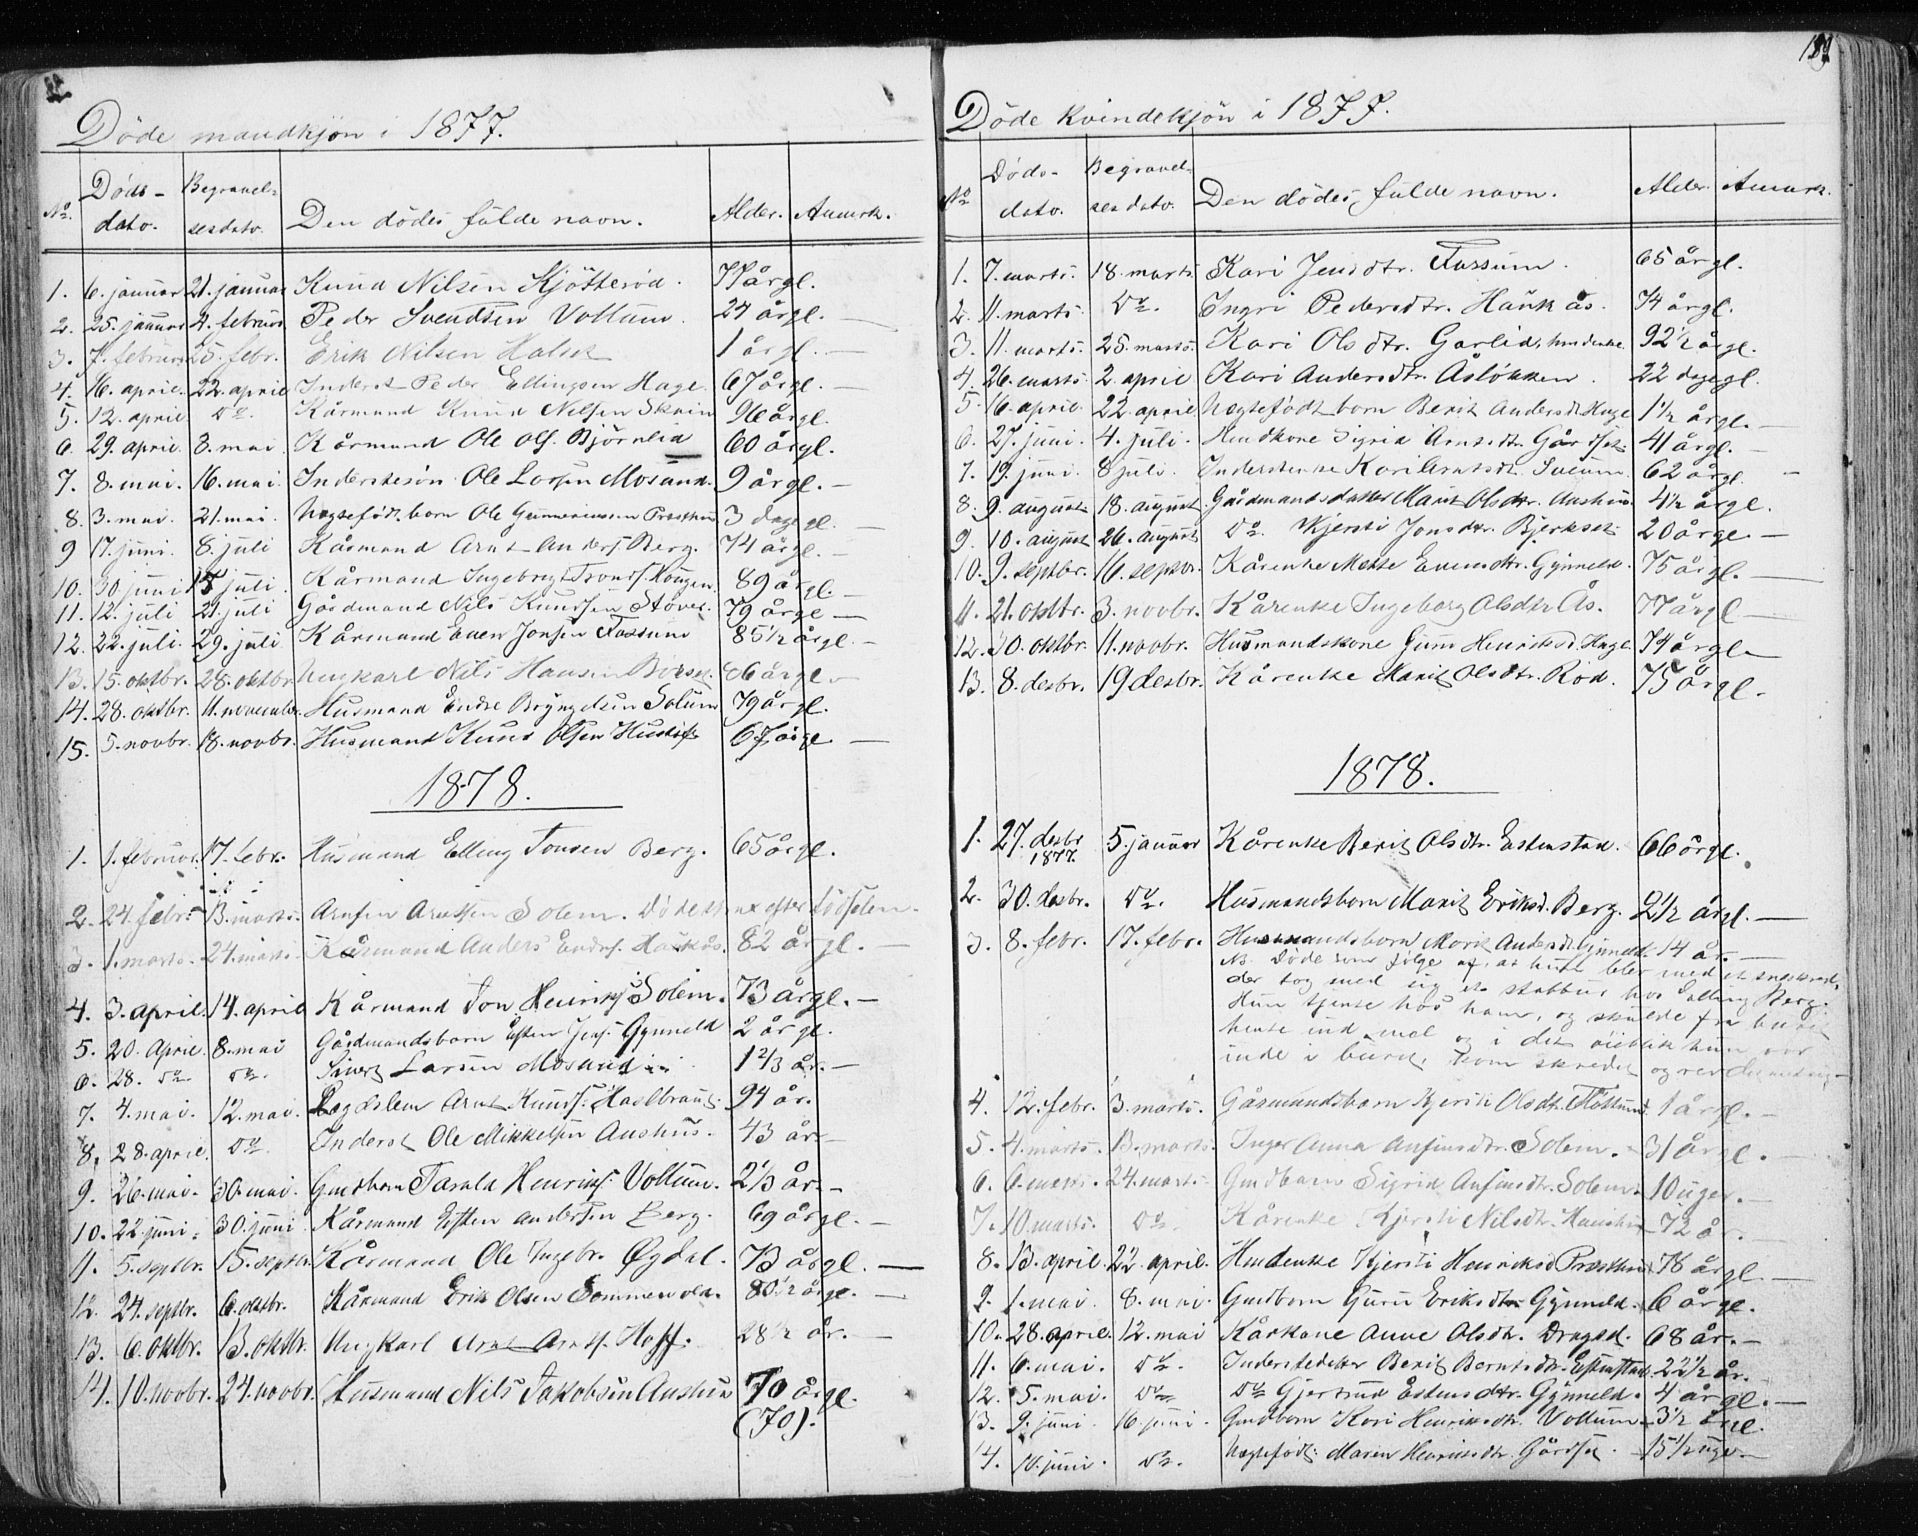 Döde mandkjön i 1877.
No. Döds-dato. Begravelsesdato. Den dödes fulde navn. Alder. Anmerk.
1. 6. januar 21. januar Knud Nilsen Kjötteröd. 77 årgl.
2. 25. januar 4. februar Peder Svendsen Vollum. 24 årgl. —
3. 7. februar 25. febr. Erik Nilsen Halset 1 årgl. —
4. 16. april. 22. april Inderst Peder Ellingsen Hage. 67 årgl. —
5. 12. april do. Kårmand Knud Nilsen 96 årgl.
6. 29. april. 8. mai Kårmand Ole Ols. Björnlid 60 årgl.
7. 8. mai. 16. mai Inderstesön Ole Larsen Mosand. 9 årgl. —
8. 3. mai. 21. mai. Uegtefödt barn Ole 3 dage gl. —
9 17. juni. 8. juli Kårmand Arnt Anders. Berg. 74 årgl. —
10. 30. juni 15 juli. Kårmand Ingebrigt Haugen 89 årgl. —
11. 12. juli 21. juli Gårdmand Nils Knudsen Stöver. 79 årgl —
12. 22. juli. 29. juli Kårmand Even Jonsen Fossum 85 1/2 årgl. —
13. 15. oktbr. 28. oktbr Ungkarl Nils Hansen 86 årgl. —
14. 28. oktbr. 11. november. Husmand Endre Bryngelsen Solum 79 årgl.
15. 5. novbr. 18. novbr. Husmand Knud Olsen 67 årgl —
1878.
1. 1. februar. 17. febr. Husmand Elling Jonsen Berg. 65 årgl.
2. 24. febr. 13. marts. Arnsen Solem. Döde efter födselen.
3. 1. marts. 24. marts Kårmand Anders Endrs. Haukås. 82 årgl. —
4. 3. april. 14. april Kårmand Jon Henriks. Solem. 73 årgl. —
5. 20. April. 8. mai Gårdmandsbarn Esten Jens. Gynneld 2 årgl.
6. 28. do. do. Sivert Larsen Mosand 1 2/3 år. —
7. 4. mai. 12. mai. Legdslem Arnt Knuds. 94 år.
8. 28. april. do. Inderst Ole Mikkelsen Aushus. 43 år. —
9. 26. mai. 30. mai. Gmdbarn Henriks. Vollum. 2 1/3 år. —
10. 22 juni. 30. juni Kårmand Esten Andersen Berg. 69 årgl. —
11. 5. septbr. 15. septbr. Kårmand Ole Ingebr. Øgdal. 73 årgl. —
12. 24. septbr. 6. oktbr. Kårmand Erik Olsen 80 1/2 årgl. —
13. 6. oktbr. 13. oktbr. Ungkarl Arnt Arnts. Hoff. 28 1/2 år. —
14. 10. novbr. 24. novbr. Husmand Nils Jakobsen Aushus 70 årgl.
(70).
189
Döde kvindekjön i 1877.
No. Döds-dato. Begravelsesdato. Den dödes fulde navn. Alder. Anmrk.
1. 7. marts. 18. marts. Kari Jensdtr. Fossum. 65 årgl.
2. 11. marts. do. Ingri Pedersdtr. Haukås. 74 årgl.
3. 11. marts. 25. marts. Kari Olsdtr. Garlid, 92 1/2 årgl.
4. 26. marts. 2. april Kari Andersdtr. Åslökken. 22 dage gl.
5. 16. april. 22. april Uegtefödt barn Berit Andersdt. Hage 1 1/2 årgl. —
6. 27. juni. 4. juli. Hmdkone Sigrid Arntsdtr. Gårdset 41 årgl. —
7. 19. juni. 8 juli. Inderstenke Kari Arntsdt. Sveum 62 årgl —
8. 9. august. 18. august Gårdmandsdatter Marit Olsdtr. Aushus. 4 1/2 årgl.
9. 10. august 26. august do. Kjersti Jonsdtr. Bjerkset. 20 årgl —
10. 9. septbr. 16. septbr. Kårenke Mette Evensdtr. Gynneld. 75 årgl. —
11. 21. oktbr. 3. novbr. Kårenke Ingeborg Olsdtr. Ås. 77 årgl —
12. 30. oktbr. 11. novbr. Husmandskone Guru Henriksd. Hage 74 årgl. —
13. 8. desbr. 19 desbr. Kårenke Marit Olsdtr. Röd. 75 årgl.
1878.
1. 27. desbr 1877. 5. januar Kårenke Berit Olsdtr. Estenstad. 66 årgl.
2. 30. desbr. do. Husmandsbarn Marit Eriksd. Berg. 2 1/2 årgl. —
3. 8. febr. 17. febr. Husmandsbarn Marit Andersdt. Gynneld. 14 år. —
NB. Döde som fölge af, at hun blev med et sneskred,
der tog med sig et stabbur hos Elling Berg.
Hun tjente hos ham, og skulde fra buret
hente ind mel og i det öieblik hun var
inde i buret, kom skredet og rev det med sig. —
4. 12. febr. 3. marts. Gårmandsbarn Kjersti Olsdtr. 1 årgl. —
5. 4. marts. 13. marts. Inger Anna Anfinsdtr. Solem. 31 årgl. —
6. 6. marts. 24. marts. Gmdbarn Sigrid Anfinsdtr. Solem. 10 uger. —
7. 10. marts. do. Kårenke Kjersti Nilsdtr. 72 år. —
8. 13. april. 22. april. Hmdenke Kjersti Henriksd 78 årgl. —
9. 1. mai. 8. mai. Gmdbarn Guru Eriksdtr Gynneld. 6 årgl.
10. 28. april. 12. mai Kårkone Anne Olsdtr. Dragsd. 68 år. —
11. 6. mai. do. Inderstedatter Berit Berntsdtr. Estenstad. 22 1/2 år.
12. 5. mai. do do Gjertrud Estensdtr. Gynneld. 4 årgl. —
13. 9. juni. 16 juni. Gmdbarn Kari Henriksdtr. Vollum. 3 1/2 årgl.
14. 10. juni. do. Uegtefödt. Maren Henriksdtr. Gårdset. 15 1/2 uge. —